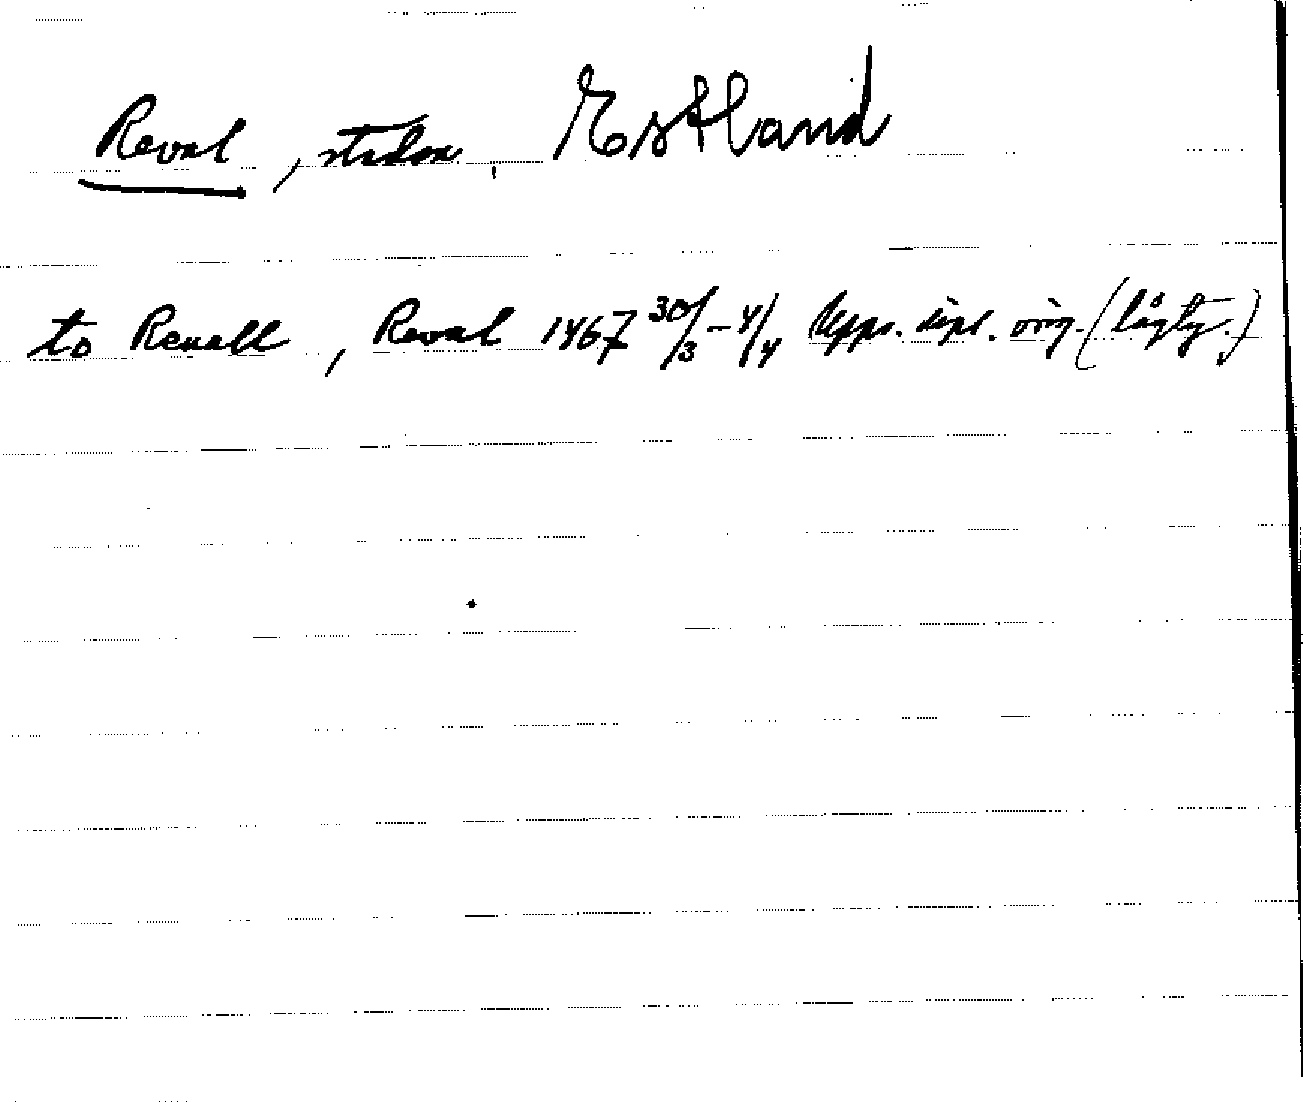 Reval, staden, Estland
to Reuall, Reval 1467 30/3 - 4/4 Upps. dipl. orig. (lågty.)